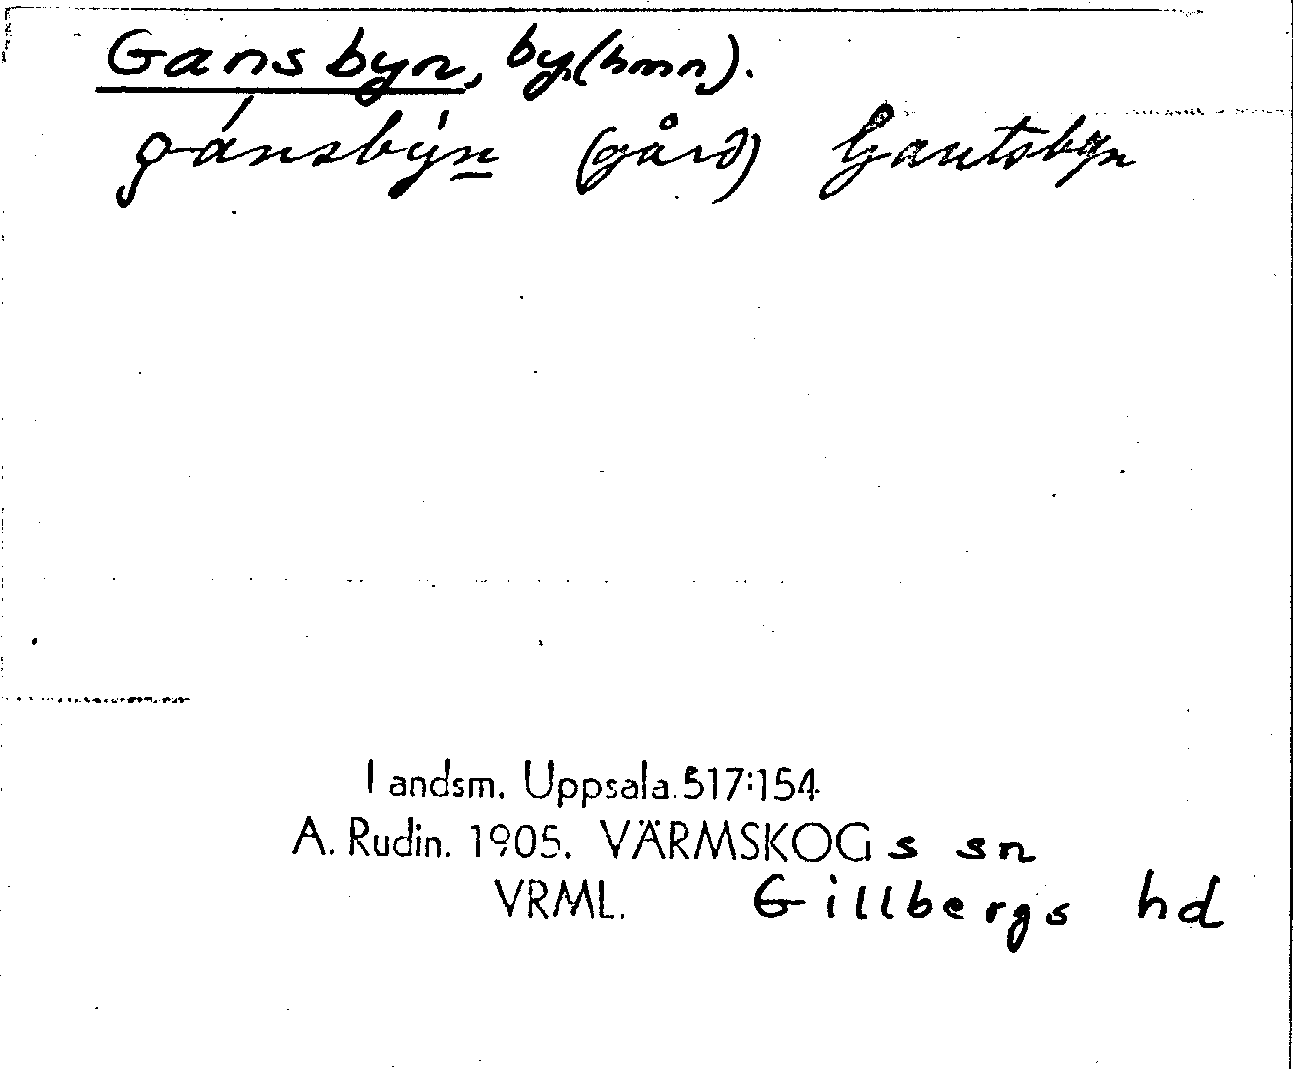 Gansbyn, by(hmn).
gánsby̍n (gård) Gautsbyn
Landsm. Uppsala.517:154
A. Rudin. 1905. VÄRMSKOGs sn
VRML. Gillbergs hd